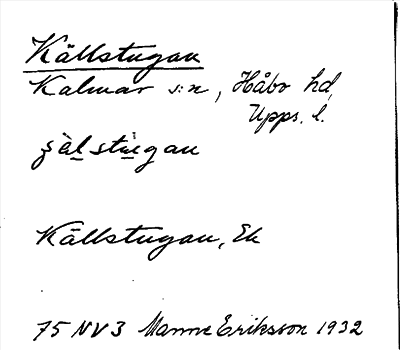 Källstugan
Kalmar s:n, Håbo hd,
Upps. l.
Källstugan, Ek
75 NV 3 Manne Eriksson 1932